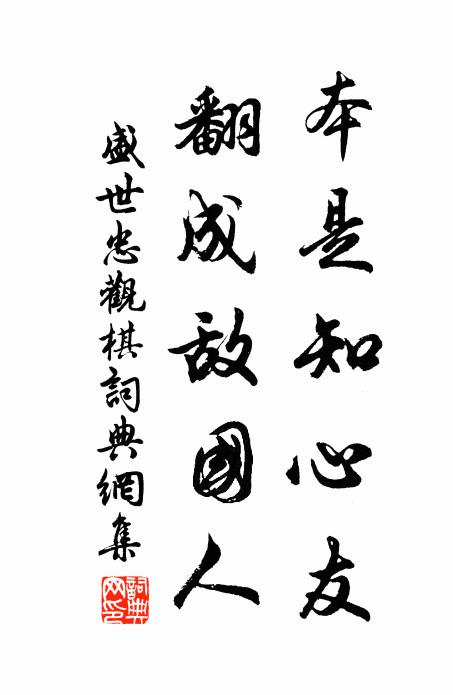 本是知心友
翻成敌國人
盛世忠觀棋詞典網集
詞典网印